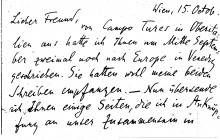 Wien, 15. Octob.
Lieber Freund,
von Campo Tures in Oberita-
lien aus hatte ich Ihnen um Mitte Septem-
ber zweimal noch nach Europe in Venedig
geschrieben. Sie hatten wohl meine beiden
Schreiben empfangen. — Nun übersende
ich Ihnen einige Seiten, die ich in Anknüp-
fung an unser Zusammensein in